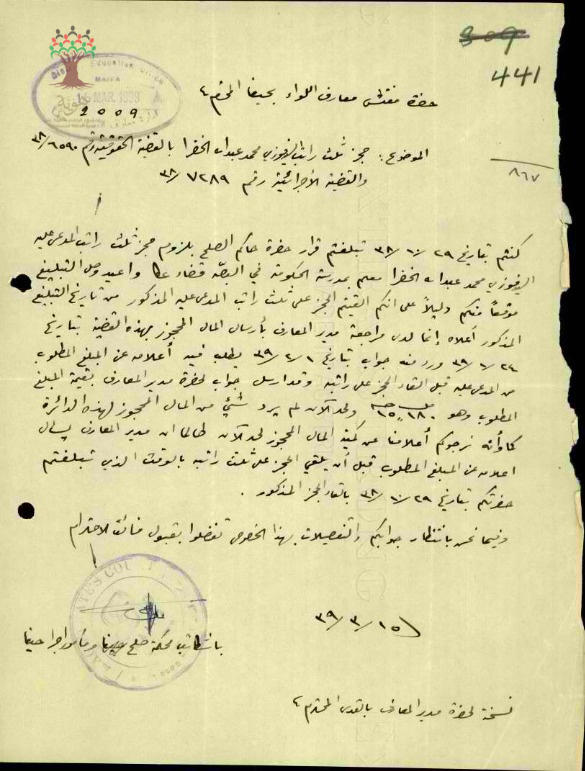 309
441
District Education Office
HAIFA
16 MAR 1939
2009
حضرة مفتش معارف اللواء بحيفا المحترم
٨٦٧
الموضوع: حجز ثلث راتب فوزي محمد عبدالله الخضرا بالقضية الحقوقية رقم ٦٥٩٠/٣٨
والقضية الأجرائية رقم ٧٢٨٩/٣٨
كنتم بتاريخ ٢٩/٦/٣٨ تبلغتم قرار حضرة حاكم الصلح بلزوم حجز ثلث راتب المدعى عليه
فوزي محمد عبدالله الخضرا معلم بمدرسة الحكومة في البصه قضاء عكا واعيد وصل التبليغ
موقعاً منكم دليلاً على انكم القيتم الحجز على ثلث راتب المدعى عليه المذكور من تاريخ التبليغ
المذكور أعلاه إنما لدى مراجعة مدير المعارف بأرسال المال المحجوز بهذه القضية بتاريخ
ورد منه جواب بتاريخ ١/٢/٣٩ يطلب فيه أعلامه عن المبلغ المطلوب
من المدعى عليه قبل القاء الحجز على راتبه وقد ارسل جواب لحضرة مدير المعارف بقيمة المبلغ
المطلوب وهو ١٥،١٨٠ ولحد الآن لم يرد شيئ من المال المحجوز لهذه الدائرة
كما وأنه نرجوكم أعلامنا عن كمية المال المحجوز لحد الآن طالما ان مدير المعارف يسأل
اعلامه عن المبلغ المطلوب قبل أن يلقي الحجز على ثلث راتبه بالوقت الذي تبلغتم
حضرتكم بتاريخ ٢٩/٦/٣٨ بالقاء الحجز المذكور .
وفيما نحن بانتظار جوابكم والتفصيلات بهذا الخصوص تفضلوا بقبول فائق الاحترام
١٥/٣/٣٩
باشكاتب محكمة صلح حيفا ومأمور اجرا حيفا
نسخة لحضرة مدير المعارف بالقدس المحترم